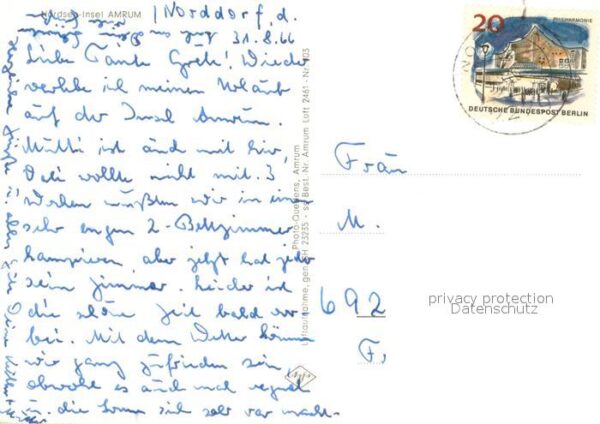 Nordsee-Insel AMRUM
Norddorf, d.
31.8.66
Liebe Tante Grete! Wieder
verlebe ich meinen Urlaub
auf der Insel Amrum.
Mutti ist auch mit hier,
wollte nicht mit. 3
Wochen mußten wir in einem
sehr engen 2-Bettzimmer
kampieren aber jetzt hat jeder
sein Zimmer. Leider ist
die schöne Zeit bald vor-
bei. Mit dem Wetter können
wir ganz zufrieden sein,
obwohl es auch mal regnet
u. die Sonne sich sehr rar macht.
Herzliche Grüße
Photo-Quedens, Amrum
Luftaufnahme, gen. SH 23235 - Best. Nr. Amrum Luft 2461 - Nr. 103
Agfa
20
PHILHARMONIE
DEUTSCHE BUNDESPOST BERLIN
Frau
M.
692
F,
privacy protection
Datenschutz